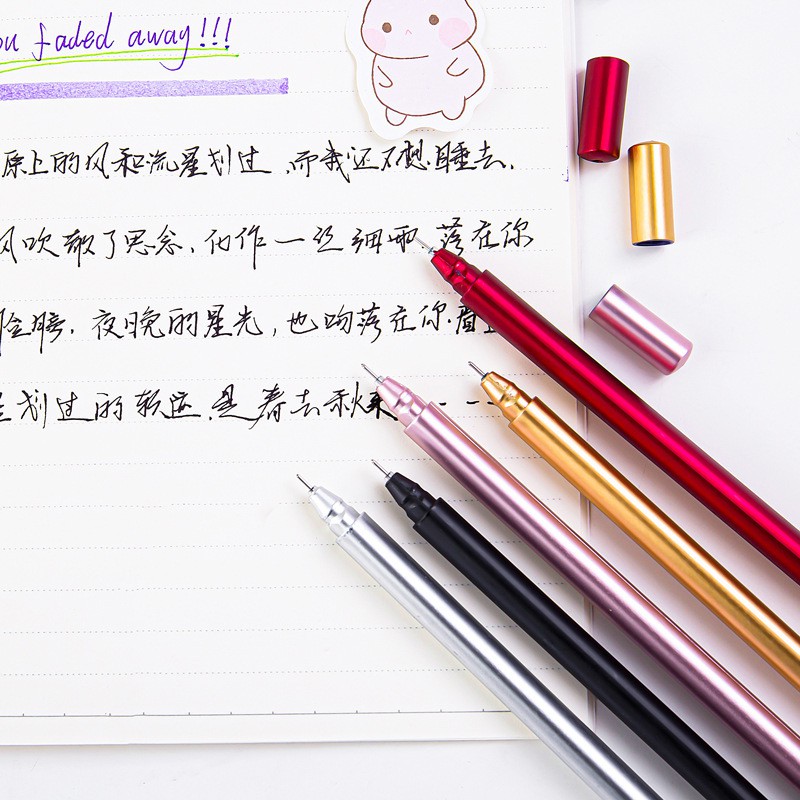 ou faded away!!!
原上的风和流星划过,而我还不想睡去.
风吹散了思念,化作一丝细雨 落在你
脸膀.夜晚的星光,也吻落在你眉
划过的轨迹.是春去秋来